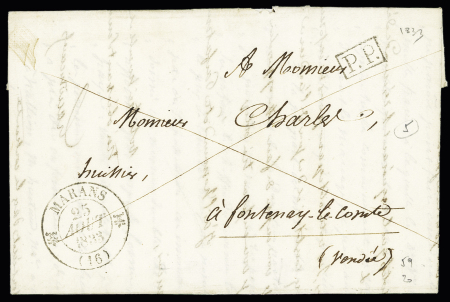 1833
P.P.
A Monsieur
Monsieur Charles,
5
huissier,
à fontenay-le-Comté
(vendée)
MARANS
25
AOUT
1833
(16)
59
20